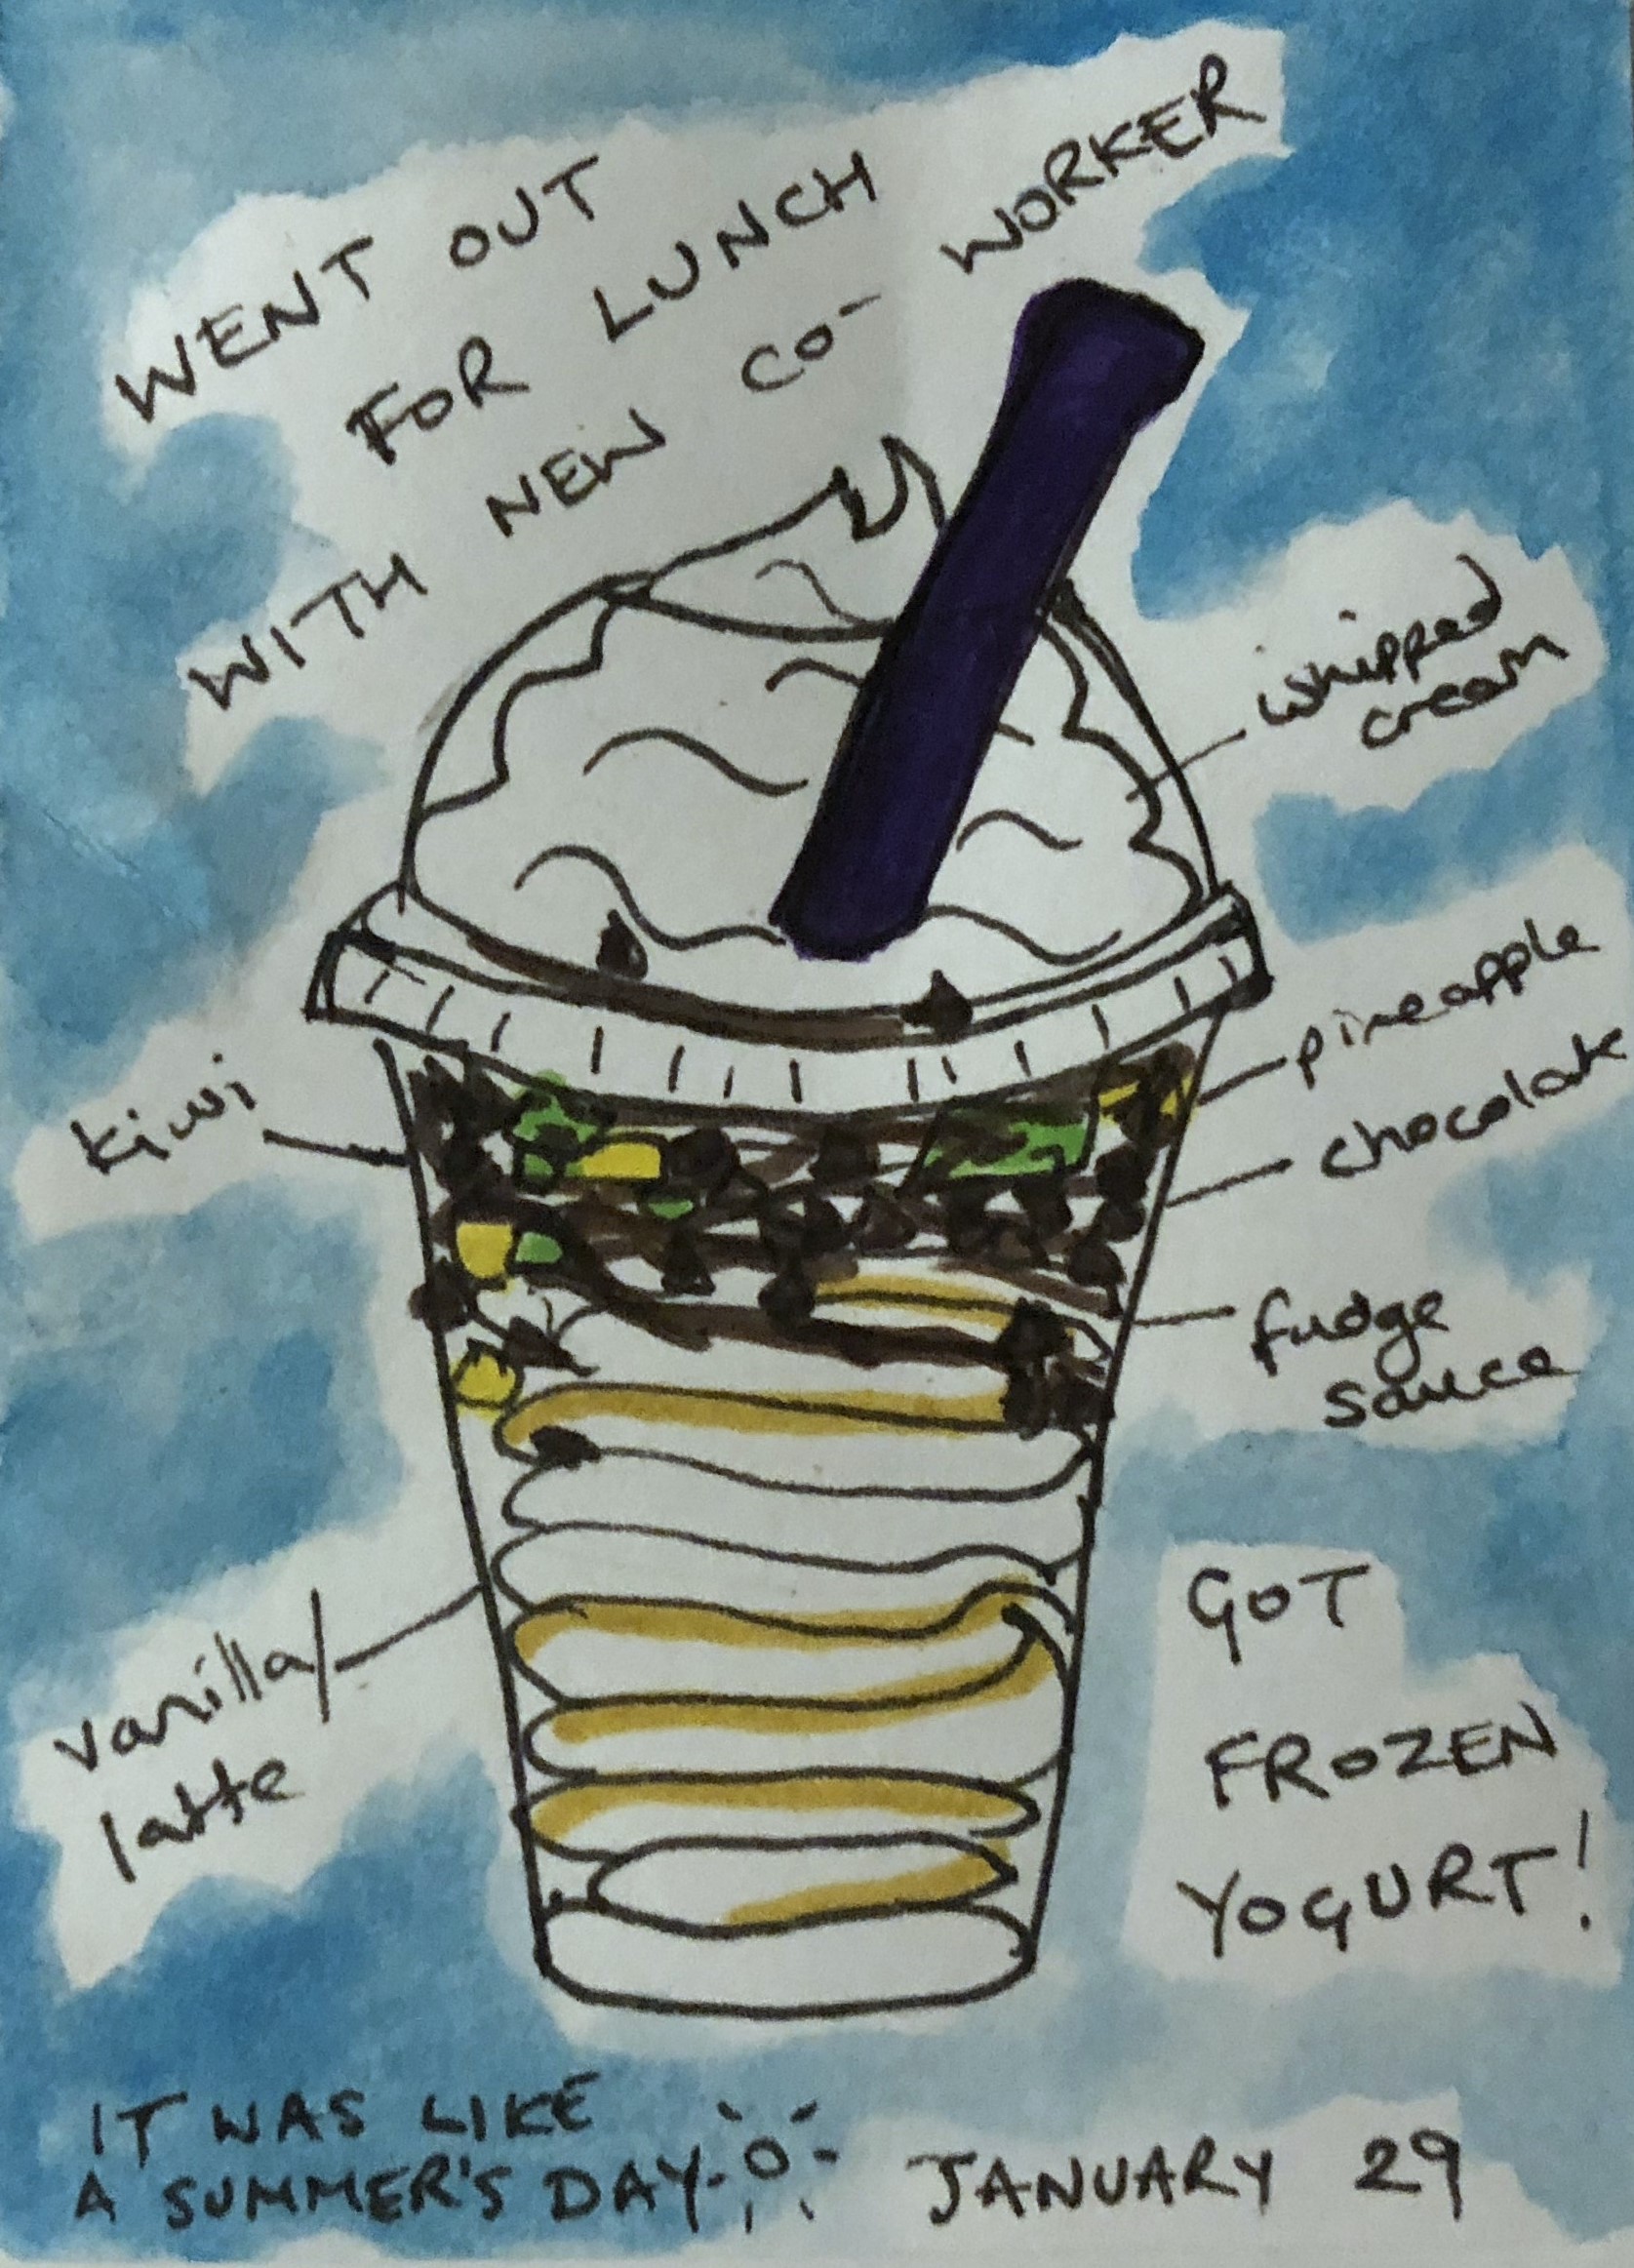 WENT OUT
FOR LUNCH
WITH NEW CO-WORKER
whipped
cream
pineapple
kiwi
chocolate
fudge
sauce
vanilla/
latte
GOT
FROZEN
YOGURT!
IT WAS LIKE
A SUMMER'S DAY
JANUARY 29